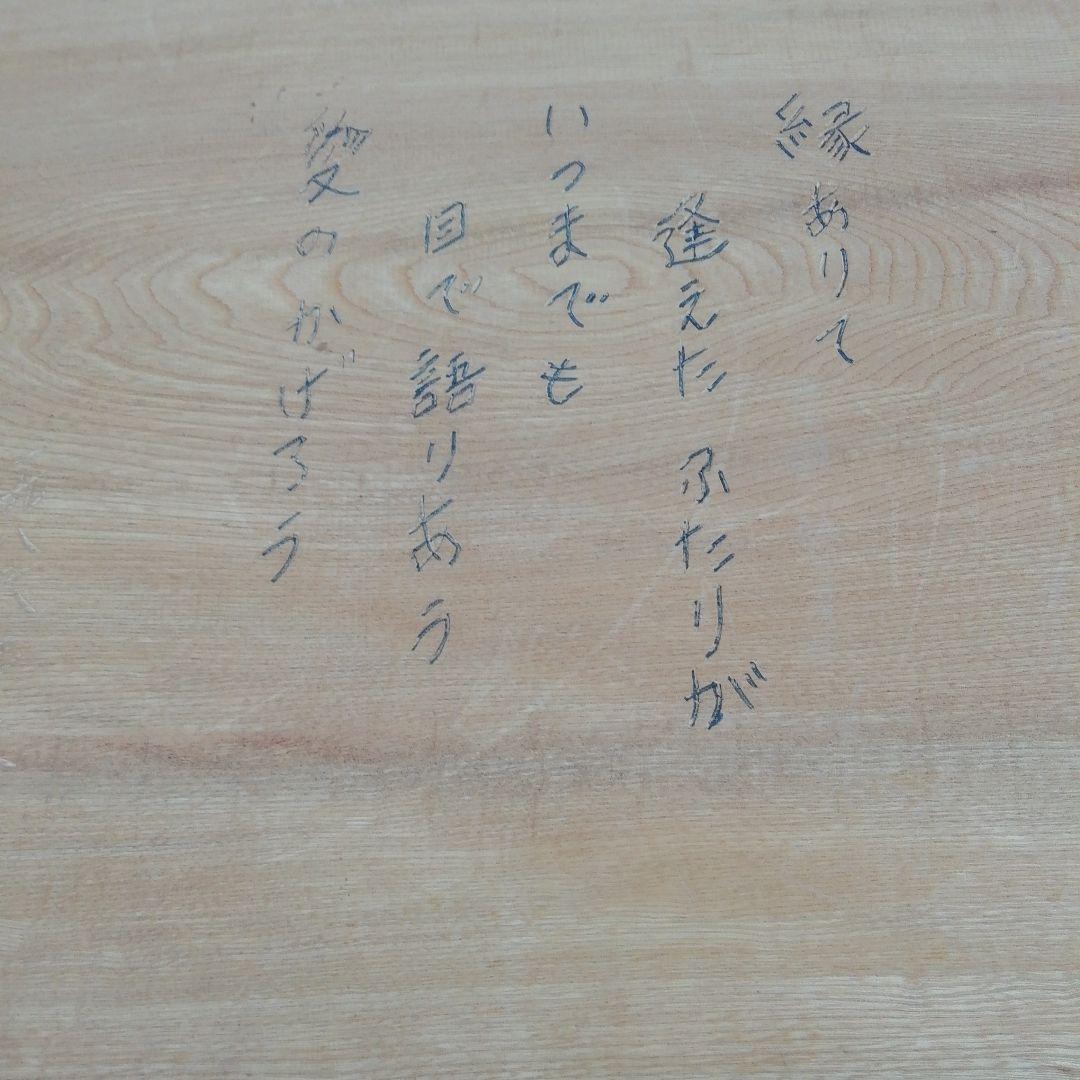 縁ありて
逢えた ふたりが
いつまでも
目で語りあう
愛のかげろう